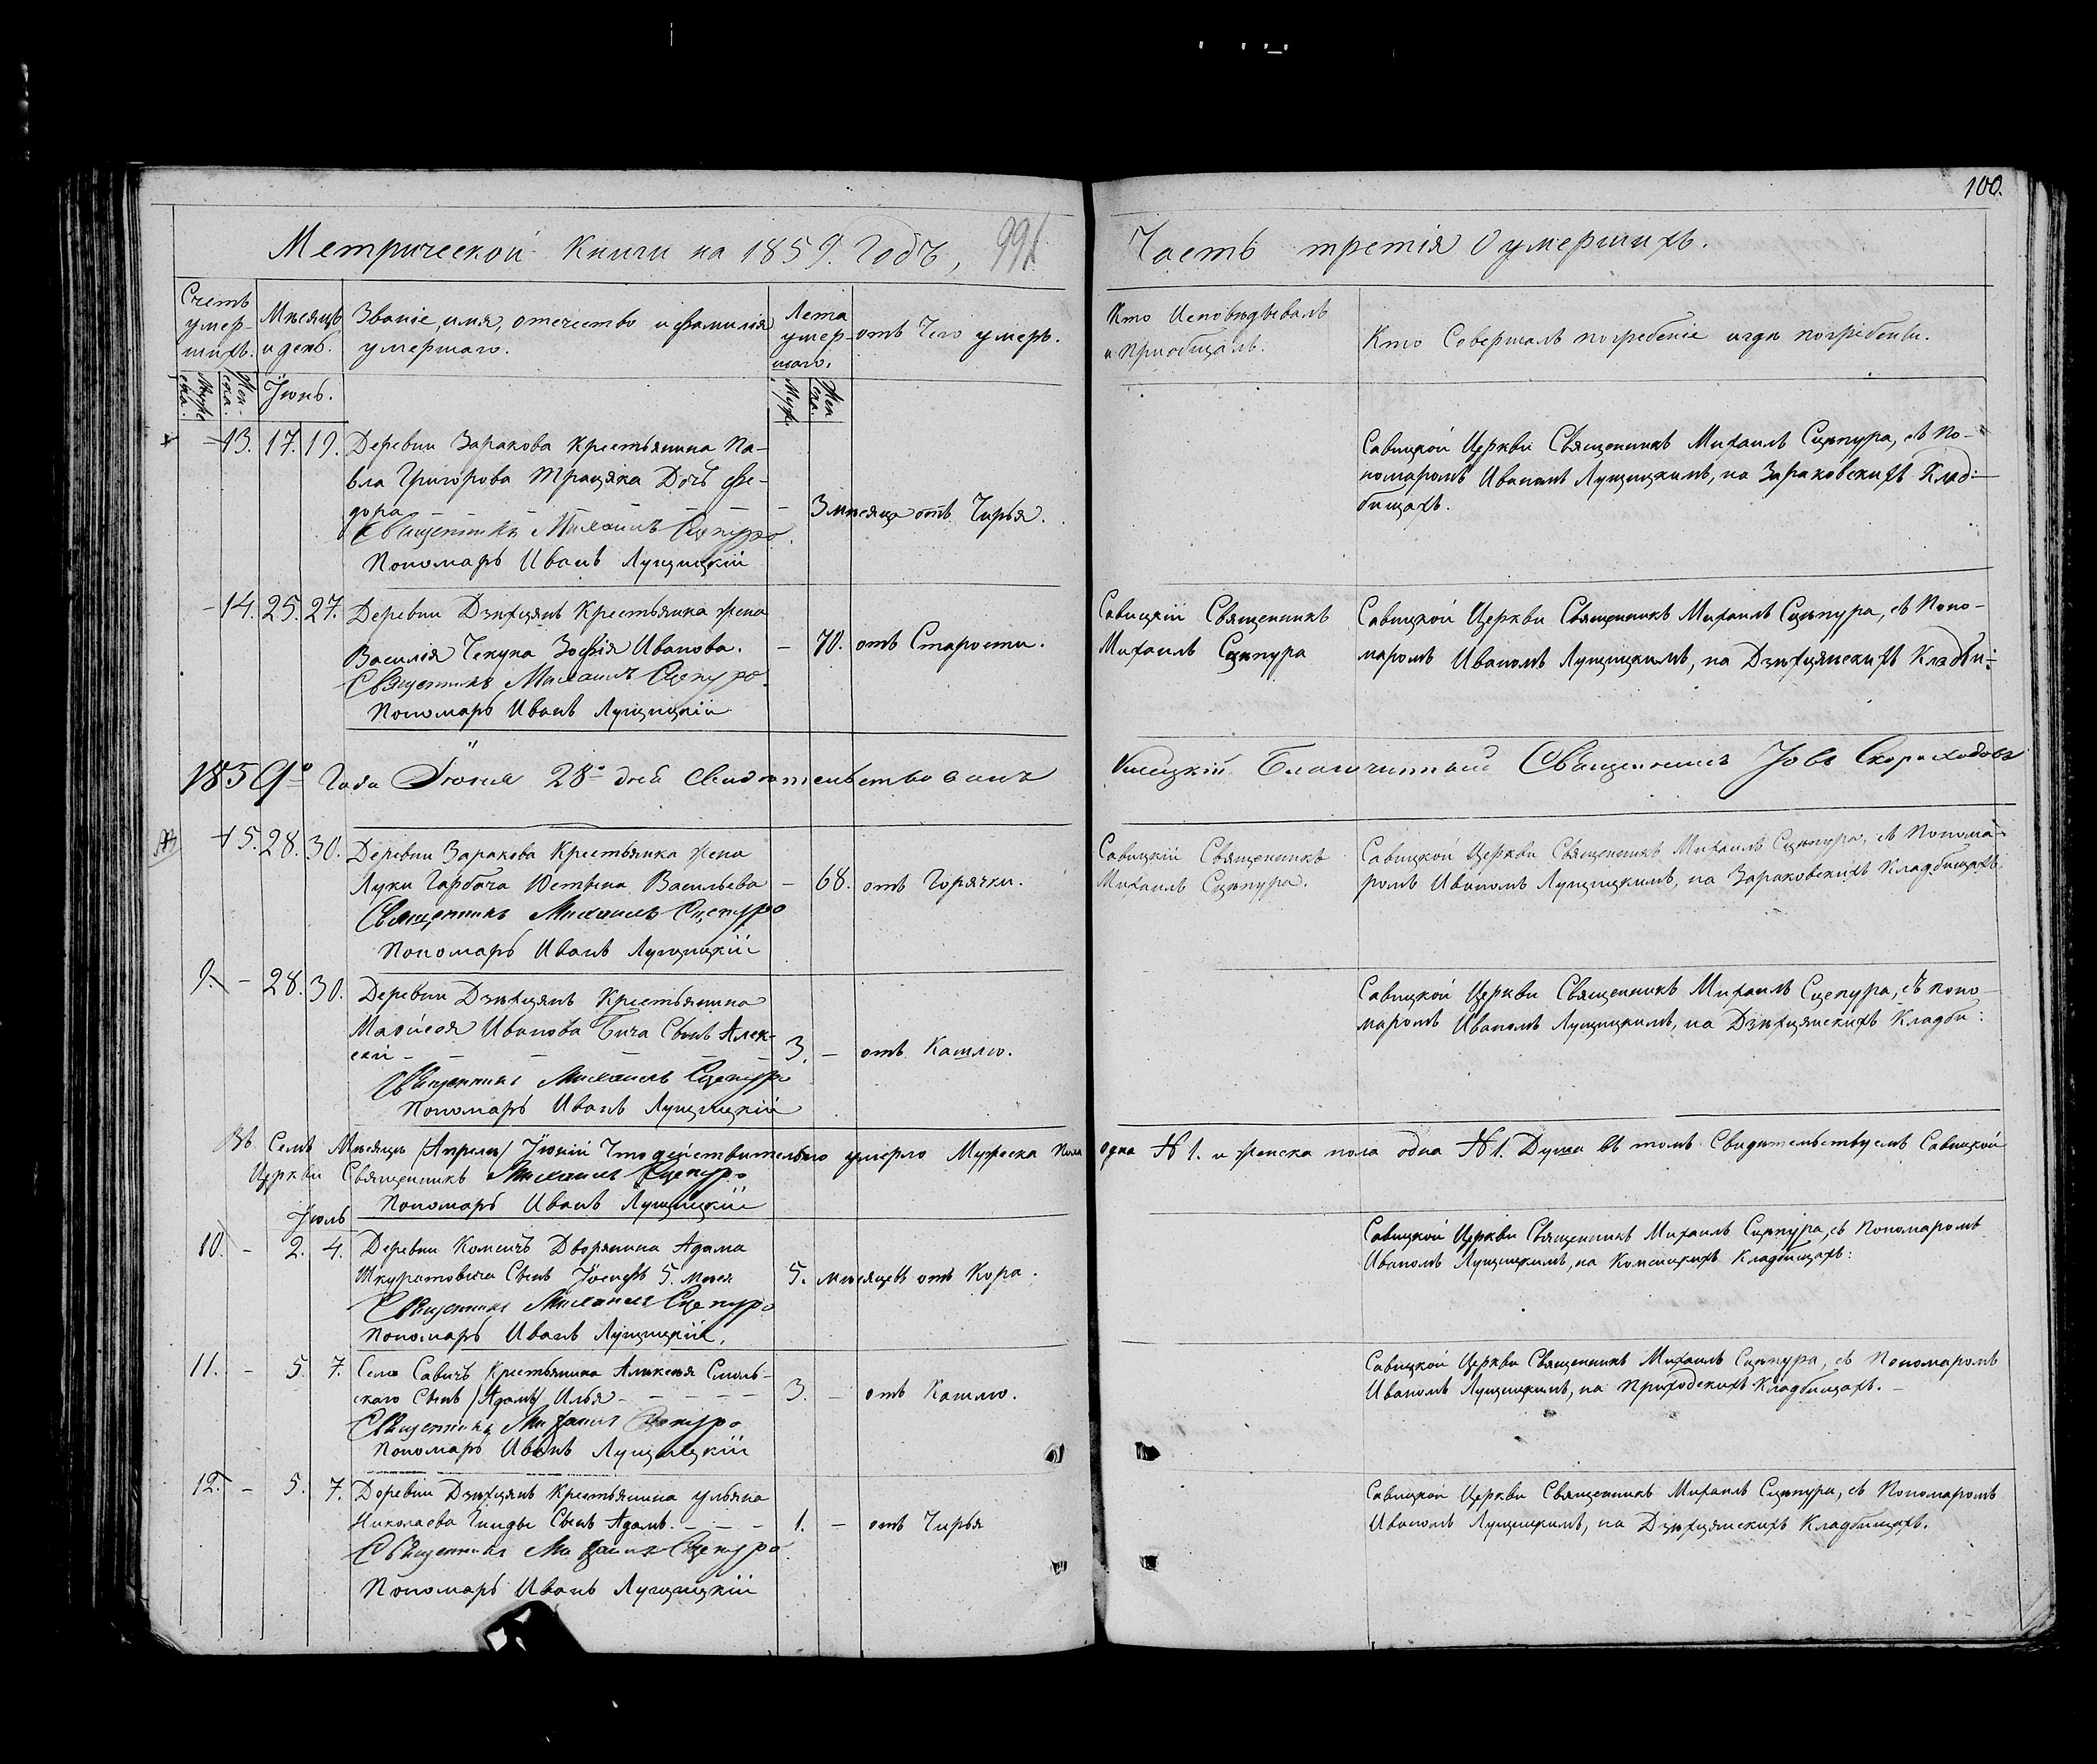 100.
Метрической Книги на 1859. Годъ, 99
Часть третія О умершихъ.
Счетъ умер-шихъ.
Мѣсяцъ и день.
Званіе, имя, отечество и фамилія умершаго.
Лета умер-шаго.
отъ Чего умеръ.
Кто Исповѣдывалъ и Приобщалъ.
Кто Совершалъ погребеніе и гдѣ погребены.
Муже ска. Жен-ска. Іюнь. Муж. Жен ска.
13. 17. 19. Деревни Заракова Крестьянина Па-
вла Григорова Трацяка Дочь Фе-
дора — 3 мѣсяца отъ Чирья.
Священникъ Михаилъ Сцепуро
Пономарь Иванъ Лущицкій
Савицкой Церкви Священникъ Михаилъ Сцѣпура, съ По-
номаромъ Иваномъ Лущицкимъ, на Зараковскихъ Клад:
бищахъ.
14. 25. 27. Деревни Дзѣхцянъ Крестьянка жена
Василія Чекуна Зофія Иванова. — 70. отъ Старости.
Священникъ Михаилъ Сцепуро
Пономарь Иванъ Лущицкій
Савицкій Священникъ
Михаилъ Сцѣпура
Савицкой Церкви Священникъ Михаилъ Сцѣпура, съ Поно-
маромъ Иваномъ Лущицкимъ, на Дзѣхцянскихъ Кладби:
1859го Года Іюня 28го дня Свидетельствовалъ
Благочинный Священникъ Іовъ Скороходовъ
15. 28. 30. Деревни Заракова Крестьянка жена
Луки Гарбача Юстына Васильева — 68. отъ Горячки.
Священникъ Михаилъ Сцепуро
Пономарь Иванъ Лущицкій
Савицкій Священникъ
Михаилъ Сцѣпура.
Савицкой Церкви Священникъ Михаилъ Сцѣпура, съ Понома-
ромъ Иваномъ Лущицкимъ, на Зараковскихъ Кладбищахъ.
9. — 28. 30. Деревни Дзѣхцянъ Крестьянина
Моисея Иванова Бича Сынъ Алек-
сей — 3. — отъ Кашлю.
Священникъ Михаилъ Сцепуро
Пономарь Иванъ Лущицкій
Савицкой Церкви Священникъ Михаилъ Сцепура, съ Поно-
маромъ Иваномъ Лущицкимъ, на Дзѣхцянскихъ Кладби:
Въ Семъ Мѣсяцѣ /Апрели/ Іюній Что дѣйствительно умерло Мужеска Пола одна № 1. и женска пола одна № 1. Душа въ томъ Свидѣтельствуемъ Савицкой
Церкви Священникъ Михаилъ Сцепуро
Пономарь Иванъ Лущицкій
Іюль
10. — 2. 4. Деревни Комсичъ Дворянина Адама
Шкуратовича Сынъ Іосифъ 5. мѣся 5. мѣсяцевъ отъ Кора.
Священникъ Михаилъ Сцепуро
Пономарь Иванъ Лущицкій.
Савицкой Церкви Священникъ Михаилъ Сцѣпура, съ Пономаромъ
Иваномъ Лущицкимъ, на Комсицкихъ Кладбищахъ:
11. — 5. 7. Села Савичъ Крестьянина Алексѣя Смоль-
скаго Сынъ /Адамъ/ Илья — 3. — отъ Кашлю.
Священникъ Михаилъ Сцепуро
Пономарь Иванъ Лущицкій
Савицкой Церкви Священникъ Михаилъ Сцѣпура, съ Пономаромъ
Иваномъ Лущицкимъ, на Приходскихъ Кладбищахъ. —
12. — 5. 7. Деревни Дзѣхцянъ Крестьянина Ульяна
Николаева Гинды Сынъ Адамъ. — 1. — отъ Чирья
Священникъ Михаилъ Сцепуро
Пономарь Иванъ Лущицкій
Савицкой Церкви Священникъ Михаилъ Сцѣпура, съ Пономаромъ
Иваномъ Лущицкимъ, на Дзѣхцянскихъ Кладбищахъ.